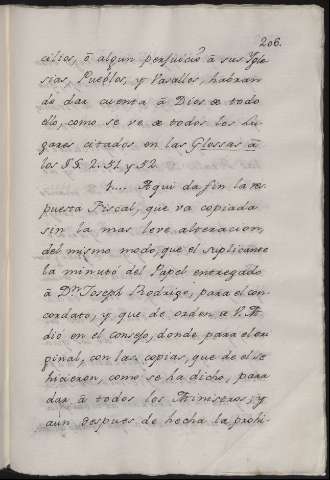 206.
cilios, ó algun perjuicio á sus Igle
sias, Pueblos, y Vasallos, habran
de dar cuenta á Dios de todo
ello, como se ve de todos los lu
gares citados en las Glossas á
los §§. 2. 51 y 52
4... Aqui da fin la res
puesta Fiscal, que va copiada
sin la mas leve alteracion,
del mismo modo, que el suplicante
la minutó del Papel entregado
á Dn. Joseph Rodrigo, para el con
cordato; y que de orden de V. M.
dió en el consejo, donde para el ori
ginal, con las copias, que de él se
hicieron, como se ha dicho, para
dar á todos los Ministros; y
aún despues de hecha la prohi-